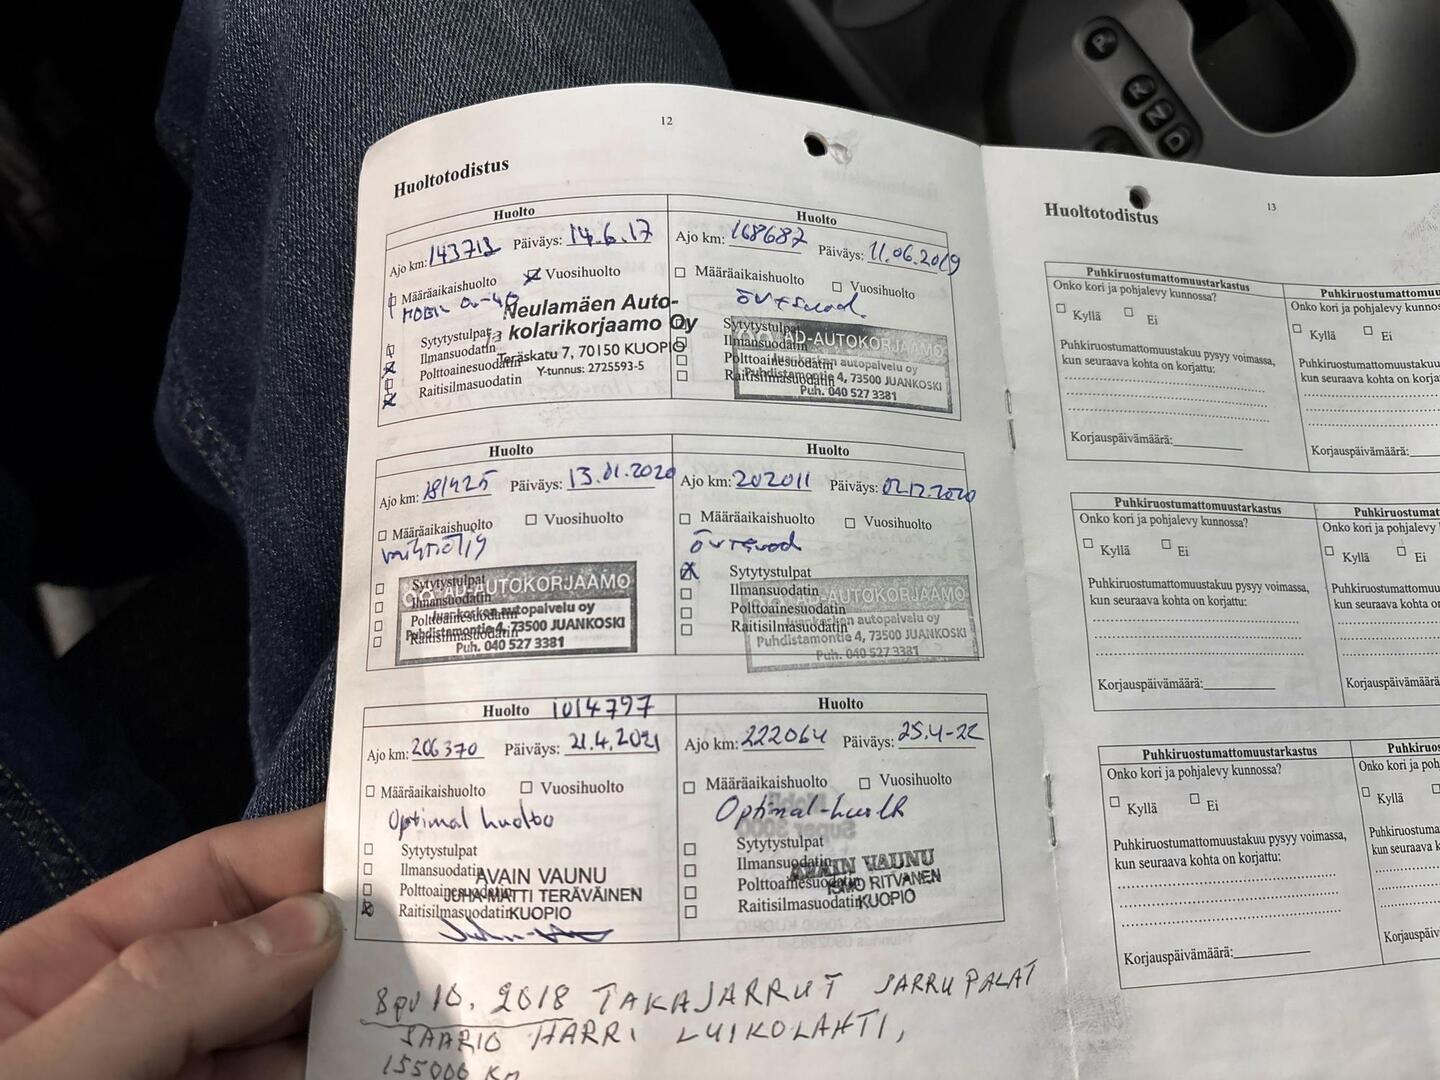 12
Huoltotodistus
Huolto
Ajo km: 143713 Päiväys: 14.6.17
Määräaikaishuolto Vuosihuolto
MOBIL 0W-40
Neulamäen Auto-
ja kolarikorjaamo Oy
Teräskatu 7, 70150 KUOPIO
Y-tunnus: 2725593-5
Sytytystulpat
Ilmansuodatin
Polttoainesuodatin
Raitisilmasuodatin
Huolto
Ajo km: 168687 Päiväys: 11.06.2019
Määräaikaishuolto Vuosihuolto
Sytytystulpat
Ilmansuodatin
Polttoainesuodatin
Raitisilmasuodatin
AD-AUTOKORJAAMO
Juankosken autopalvelu oy
Puhdistamontie 4, 73500 JUANKOSKI
Puh. 040 527 3381
Huolto
Ajo km: 181425 Päiväys: 13.01.2020
Määräaikaishuolto Vuosihuolto
Sytytystulpat
Ilmansuodatin
Polttoainesuodatin
Raitisilmasuodatin
AD-AUTOKORJAAMO
Juankosken autopalvelu oy
Puhdistamontie 4, 73500 JUANKOSKI
Puh. 040 527 3381
Huolto
Ajo km: 202011 Päiväys: 02.12.2020
Määräaikaishuolto Vuosihuolto
Sytytystulpat
Ilmansuodatin
Polttoainesuodatin
Raitisilmasuodatin
AD-AUTOKORJAAMO
Juankosken autopalvelu oy
Puhdistamontie 4, 73500 JUANKOSKI
Puh. 040 527 3381
Huolto 1014797
Ajo km: 206370 Päiväys: 21.4.2021
Määräaikaishuolto Vuosihuolto
Optimal huolto
Sytytystulpat
Ilmansuodatin
Polttoainesuodatin
Raitisilmasuodatin
AVAIN VAUNU
JUHA-MATTI TERÄVÄINEN
KUOPIO
Huolto
Ajo km: 222064 Päiväys: 25.4-22
Määräaikaishuolto Vuosihuolto
Optimal-huolto
Sytytystulpat
Ilmansuodatin
Polttoainesuodatin
Raitisilmasuodatin
AVAIN VAUNU
ISMO RITVANEN
KUOPIO
8 pv 10. 2018 TAKAJARRUT JARRUPALAT
SAARIO HARRI LUIKOLAHTI,
155000 KM
13
Huoltotodistus
Puhkiruostumattomuustarkastus
Onko kori ja pohjalevy kunnossa?
Kyllä Ei
Puhkiruostumattomuustakuu pysyy voimassa,
kun seuraava kohta on korjattu:
Korjauspäivämäärä:
Puhkiruostumattomuu
Onko kori ja pohjalevy kunnos
Kyllä Ei
Puhkiruostumattomuustakuu
kun seuraava kohta on korja
Korjauspäivämäärä:
Puhkiruostumattomuustarkastus
Onko kori ja pohjalevy kunnossa?
Kyllä Ei
Puhkiruostumattomuustakuu pysyy voimassa,
kun seuraava kohta on korjattu:
Korjauspäivämäärä:
Puhkiruostumat
Onko kori ja pohjalevy
Kyllä Ei
Puhkiruostumattomuust
kun seuraava kohta o
Korjauspäivämäärä
Puhkiruostumattomuustarkastus
Onko kori ja pohjalevy kunnossa?
Kyllä Ei
Puhkiruostumattomuustakuu pysyy voimassa,
kun seuraava kohta on korjattu:
Korjauspäivämäärä:
Puhkiruo
Onko kori ja poh
Kyllä
Puhkiruostuma
kun seuraava
Korjauspäiv
P
R
N
D